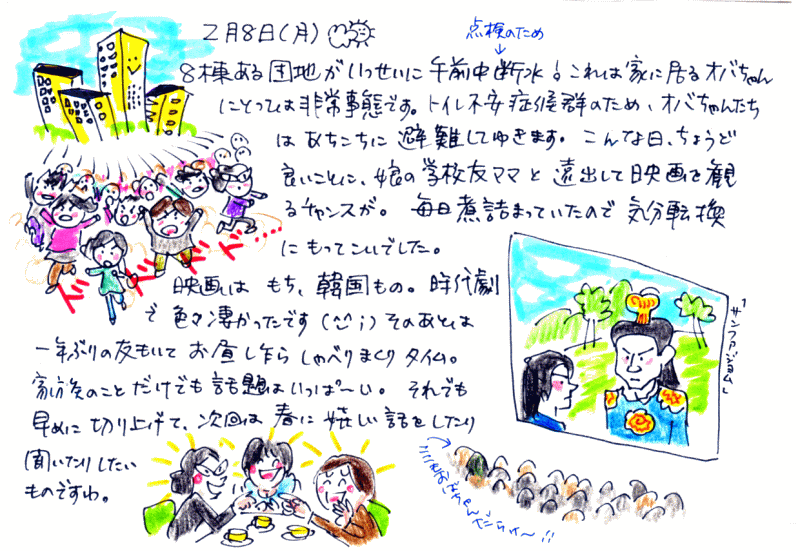 2月8日(月)
点検のため
8棟ある団地がいっせいに午前中断水!これは家に居るオバちゃん
にとっては非常事態です。トイレ不安症候群のため、オバちゃんたち
はあちこちに避難してゆきます。こんな日、ちょうど
良いことに、娘の学校友ママと遠出して映画を観
るチャンスが。毎日煮詰まっていたので気分転換
にもってこいでした。
映画は もち、韓国もの。時代劇
で色々凄かったです(^^;)そのあとは
一年ぶりの友もいて お昼しながらしゃべりまくりタイム。
家族のことだけでも話題はいっぱ〜い。それでも
早めに切り上げて、次回は春に嬉しい話をしたり
聞いたりしたい
ものですわ。
ドドドド...
「サンファジョム」